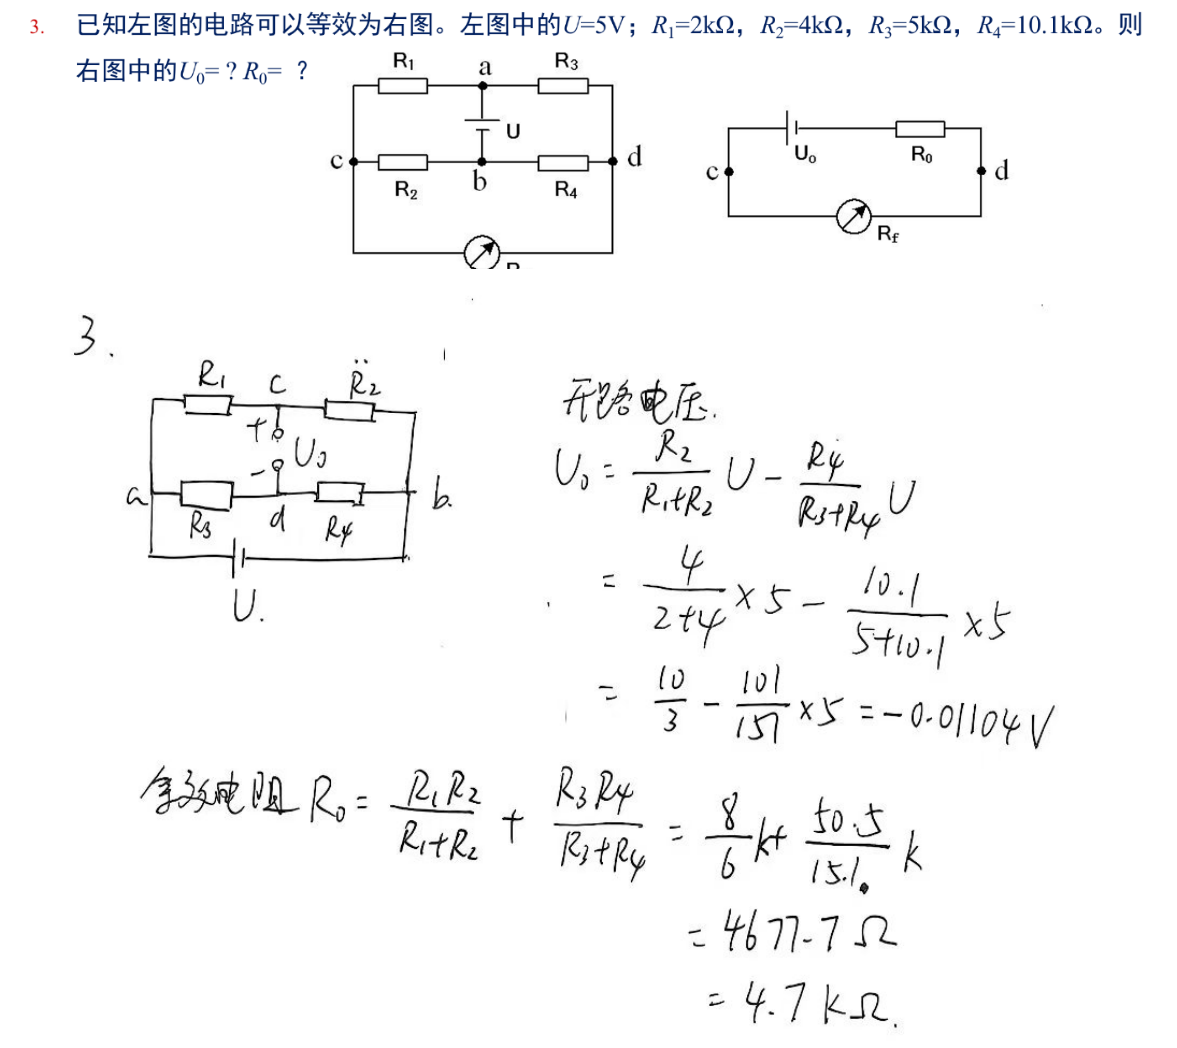 3. 已知左图的电路可以等效为右图。左图中的U=5V；R₁=2kΩ，R₂=4kΩ，R₃=5kΩ，R₄=10.1kΩ。则
右图中的U₀=？R₀=？
R₁ a R₃
U
c d
R₂ b R₄
U₀ R₀
c d
R_f
3.
R₁ c R₂
+
U₀
-
a b.
R₃ d R₄
U.
开路电压.
U₀ = R₂/(R₁+R₂) U - R₄/(R₃+R₄) U
= 4/(2+4) ×5 - 10.1/(5+10.1) ×5
= 10/3 - 101/151 ×5 = -0.01104V
等效电阻 R₀ = R₁R₂/(R₁+R₂) + R₃R₄/(R₃+R₄) = 8/6 k+ 50.5/15.1 k
= 4677.7Ω
= 4.7kΩ.